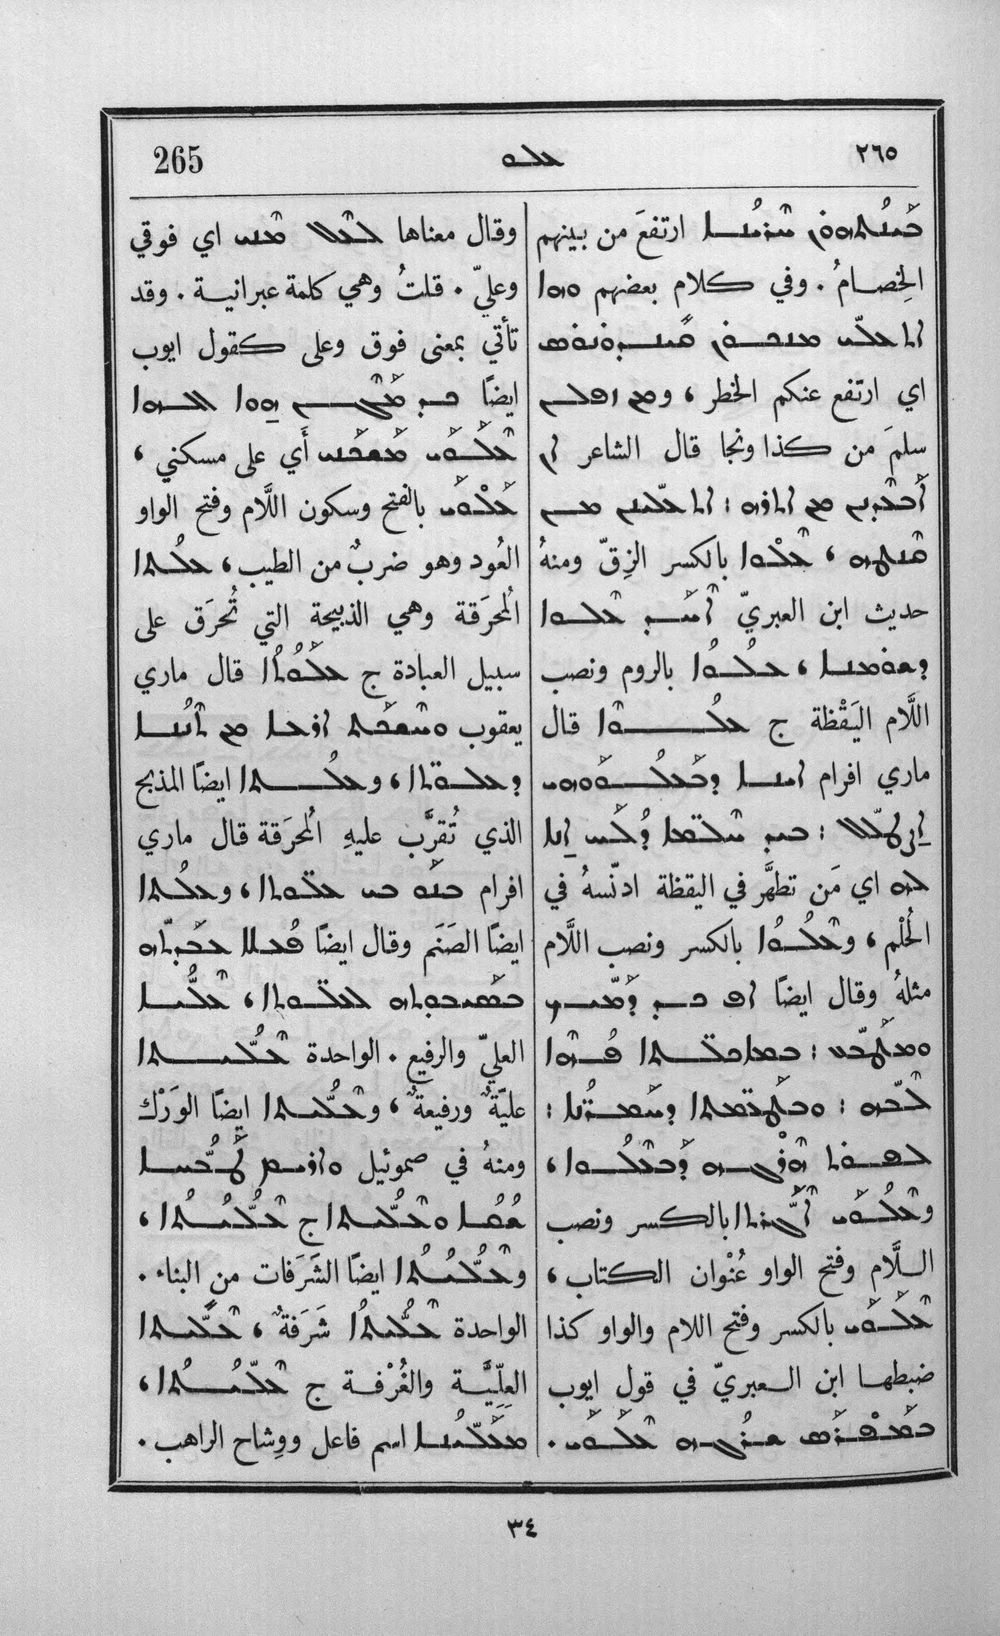 ٢٦٥ ܥܠܘ 265
ܒܝܢܬܗܘܢ ܚܪܝܢܐ ارتفعَ من بينهم
الخِصامُ . وفي كلام بعضهم ܗܘܐ
ܐܬܥܠܝ ܡܢܟܘܢ ܩܝܢܕܘܢܘܣ
اي ارتفع عنكم الخطر ، و ܡܢ
سلمَ من كذا ونجا قال الشاعر ܐܢ
ܡܢ ܐܬܪܗ : ܐܬܥܠܝܢ ܡܢ
، ܥܠܘܐ بالكسر الزِقّ ومنهُ
حديث ابن العبريّ ܥܠܘܐ
، ܥܠܘܐ بالروم ونصب
اللَّام اليَقْظة ج ܥܠܘ̈ܐ قال
ماري افرام ܐܝܢܐ ܕܒܥܠܘܘܗܝ
: ܒܝܕ ܚܠܡ̈ܐ ܐܢܐ
ܠܗ اي مَن تطهَّر في اليقظة ادنّسهُ في
الحُلْم ، و ܥܠܘܐ بالكسر ونصب اللَّام
مثلهُ وقال ايضًا ܐܦ ܟܕ ܕܡܝܟ
: ܦܐܪ̈ܐ
ܠܒܗ : :
،
و ܥܠܘܝ ܐܓܪܬܐ بالكسر ونصب
اللَّام وفتح الواو عُنْوان الكتاب ،
ܥܠܘܝ بالكسر وفتح اللام والواو كذا
ضبطها ابن العبريّ في قول ايوب
ܫܪܓܗ ܥܠܘܝ .
وقال معناها ܠܥܠ ܡܢܝ اي فوقي
وعليّ . قلتُ وهي كلمة عبرانية . وقد
تأتي بمعنى فوق وعلى كقول ايوب
ايضًا ܟܕ ܡܓܢ ܗܘܐ ܐܠܗܐ
ܥܠܘܝ ܡܫܟܢܝ أَي على مسكني ،
ܥܠܘܝ بالفتح وسكون اللَّام وفتح الواو
العُود وهو ضربٌ من الطيب ، ܥܠܬܐ
المُحرَقة وهي الذبيحة التي تُحرَق على
سبيل العبادة ج ܥܠܘܬܐ قال ماري
يعقوب ܘܚܫܒܬ ܐܪܥܐ ܡܢ ܬܢܢܐ
ܕܥܠܘ̈ܬܐ ، و ܥܠܬܐ ايضًا المذبح
الذي تُقرَّب عليهِ المُحرَقة قال ماري
افرام ܒܢܘ ܒܝ ܥܠܘ̈ܬܐ ، و ܥܠܬܐ
ايضًا الصَنَم وقال ايضًا
ܠܥܠܘ̈ܬܐ ، ܥܠܝܐ
العليّ والرفيع . الواحدة ܥܠܝܬܐ
عليَّةٌ ورفيعةٌ ، و ܥܠܝܬܐ ايضًا الوَرْك
ومنهُ في صموئيل ܘܐܪܝܡ ܛܒܚܐ
ܫܩܐ ܘܥܠܝܬܐ ج ܥܠܝܬܐ ،
و ܥܠܝܬܐ ايضًا الشَرَفات من البناء .
الواحدة ܥܠܝܬܐ شَرَفةٌ ، ܥܠܝܬܐ
العِلِّيَّة والغُرْفة ج ܥܠܝܬܐ ،
ܡܥܠܝܢܐ اسم فاعل ووِشاح الراهب .
٣٤